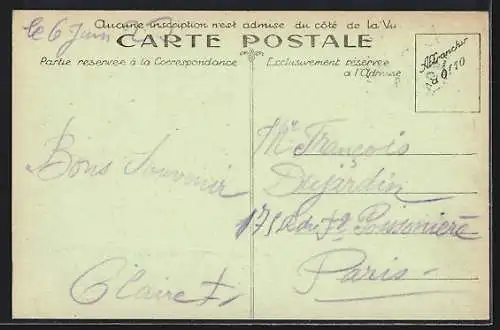 Aucune inscription n'est admise du côté de la Vu
le 6 Juin
CARTE POSTALE
Partie reservée à la Correspondance
Exclusivement réservée
à l'Adresse
Affranchir
à
0f10
Bons Souvenir
Claire
Mr François
Dujardin
175 du Poissonière
Paris